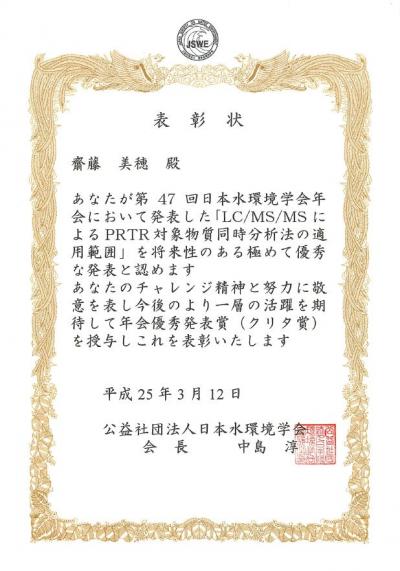 JSWE
表彰状
齋藤 美穂 殿
あなたが第 47 回日本水環境学会年
会において発表した「LC/MS/MS に
よる PRTR 対象物質同時分析法の適
用範囲」を将来性のある極めて優秀
な発表と認めます
あなたのチャレンジ精神と努力に敬
意を表し今後のより一層の活躍を期
待して年会優秀発表賞（クリタ賞）
を授与しこれを表彰いたします
平成 25 年 3 月 12 日
公益社団法人日本水環境学会
会 長 中島 淳